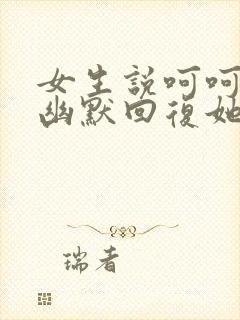 女生説呵呵
幽默回復她
瑞者